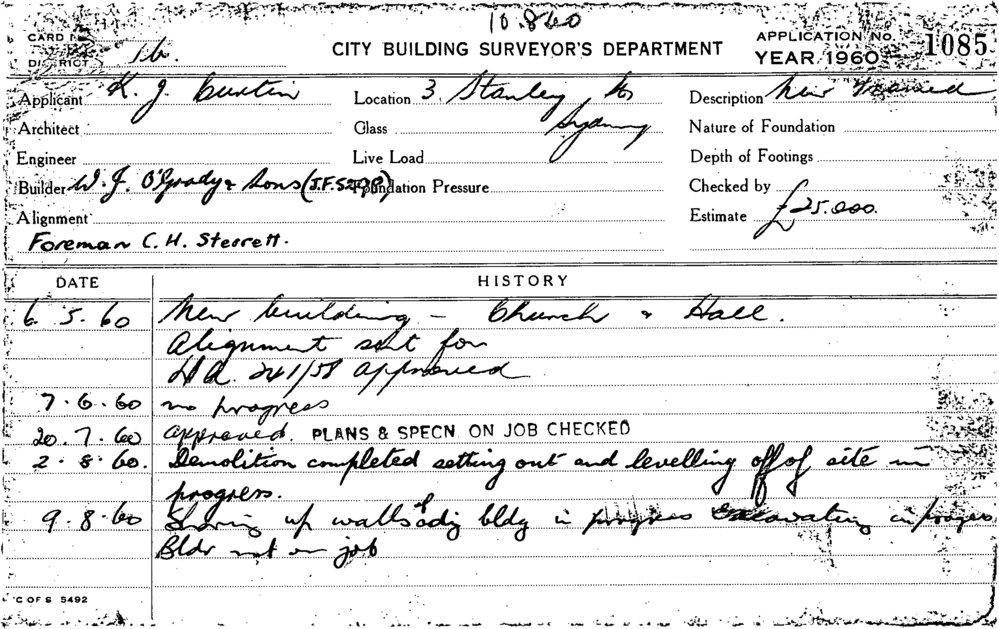 10.8.60
CARD
DISTRICT 16.
CITY BUILDING SURVEYOR'S DEPARTMENT
APPLICATION No.
YEAR 1960
1085
Applicant K. J. Curtin
Location 3 Stanley
Sydney
Description New
Architect
Glass
Nature of Foundation
Engineer
Live Load
Depth of Footings
Builder W. J. O'Grady & Sons (J.F.5298)
Foundation Pressure
Checked by
Alignment
Estimate £25.000.
Foreman C. H. Sterrett.
DATE
HISTORY
6. 5. 60 New building – Church & Hall.
Alignment sent for
241/58 Approved
7.6.60 no progress
20.7.60 approved. PLANS & SPECN. ON JOB CHECKED
2.8.60. Demolition completed setting out and levelling off of site in
progress.
9.8.60 Shoring up walls of adjg bldg in progress Excavating in progress
Bldr not on job
C OF S 5492